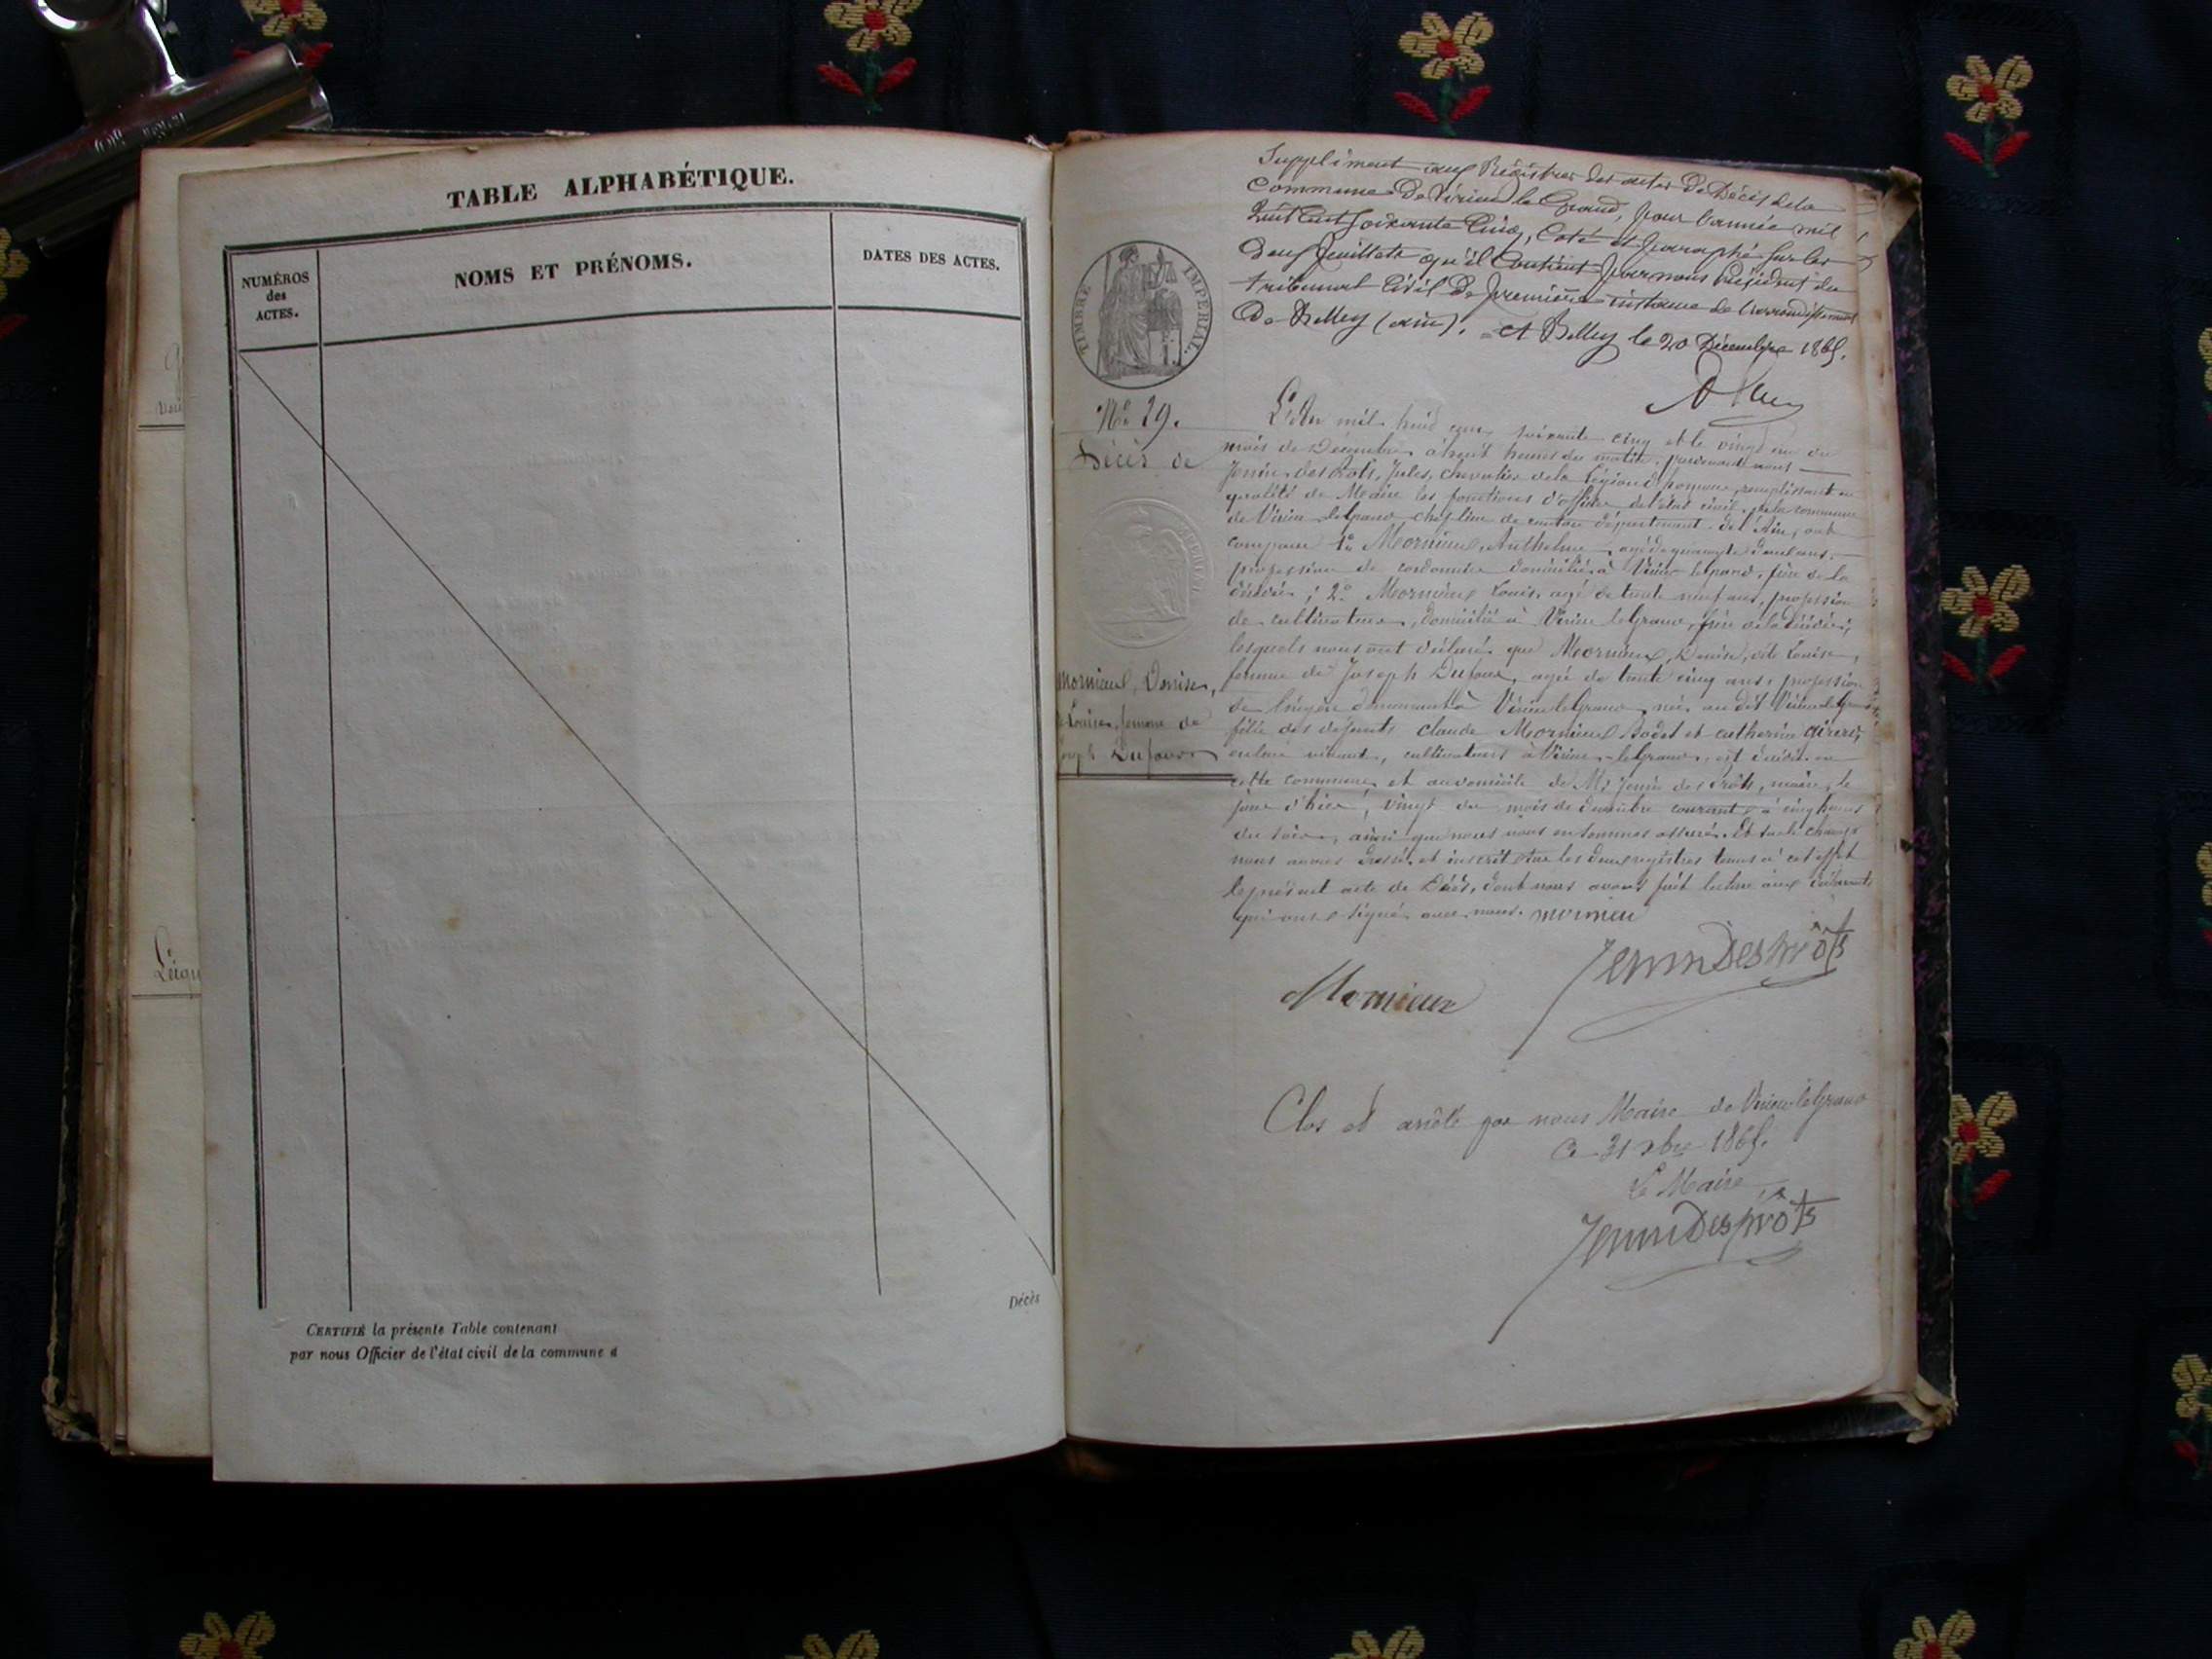 TABLE ALPHABÉTIQUE.
NUMÉROS
des
ACTES.
NOMS ET PRÉNOMS.
DATES DES ACTES.
Décès
CERTIFIÉ la présente Table contenant
par nous Officier de l'état civil de la commune d
Supplément aux Régistres des actes de Décès de la
Commune de Virieu le Grand, pour l'année mil
huit Cent soixante Cinq, Coté et paraphé sur les
deux feuillets qu'il Contient par nous Président du
tribunal Civil de première instance de l'arrondissement
de Belley (ain). A Belley le 20 Décembre 1865.
TIMBRE IMPÉRIAL.
No 29.
Décès de
Mornieux, Denise,
Louise, femme de
Joseph Dufour
L'An mil huit cent soixante cinq et le vingt un du
mois de Décembre à huit heures du matin, pardevant nous
Jenin des Prôts, Jules, chevalier de la Légion d'honneur, remplissant en
qualité de Maire les fonctions d'officier de l'état civil de la commune
de Virieu le Grand chef lieu de canton département de l'Ain, ont
comparu 1o Mornieux, Anthelme, agé de quarante deux ans,
profession de cordonnier domicilié à Virieu legrand, frère de la
décédée ; 2o Mornieux Louis, agé de trente neuf ans, profession
de cultivateur, domicilié à Virieu leGrand, frère de la décédée,
lesquels nous ont déclaré que Mornieux, Denise, dite Louise,
femme de Joseph Dufour, agée de trente cinq ans, profession
de lingère demeurant à Virieu leGrand, née au dit Virieu leGrand
fille des défunts Claude Mornieux Bodet et catherine
vivant, cultivateurs à Virieu-leGrand, est décédée en
cette commune et au domicile de Mr Jenin des Prôts, maire, le
jour d'hier, vingt du mois de décembre courant à cinq heures
du soir, ainsi que nous nous en sommes assuré. Et sur le champ
nous avons dressé et inscrit sur les deux registres tenus à cet effet
le présent acte de Décès, dont nous avons fait lecture aux déclarants
qui ont signé avec nous. mornieu
Jenin Des prôts
Mornieux
Clos et arrêté par nous Maire de Virieu leGrand
Ce 31 xbre 1865.
Le Maire
Jenin Des prôts